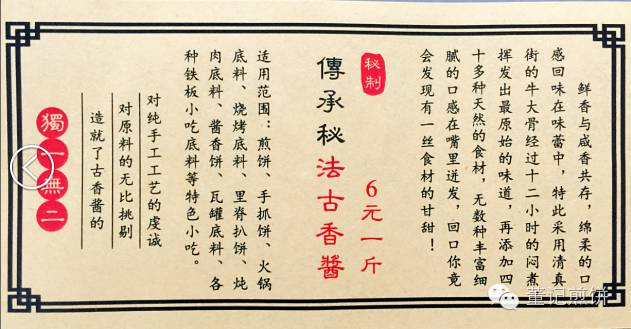 鲜香与咸香共存，绵柔的口
感回味在味蕾中，特此采用清真
街的牛大骨经过十二小时的闷煮
挥发出最原始的味道，再添加四
十多种天然的食材，无数种丰富细
腻的口感在嘴里迸发，回口你竟
会发现有一丝食材的甘甜！
秘制
傳承秘法古香醬
6元一斤
适用范围：煎饼、手抓饼、火锅
底料、烧烤底料、里脊扒饼、炖
肉底料、酱香饼、瓦罐底料、各
种铁板小吃底料等特色小吃。
对纯手工工艺的虔诚
对原料的无比挑剔
造就了古香酱的
獨一無二
董记煎饼